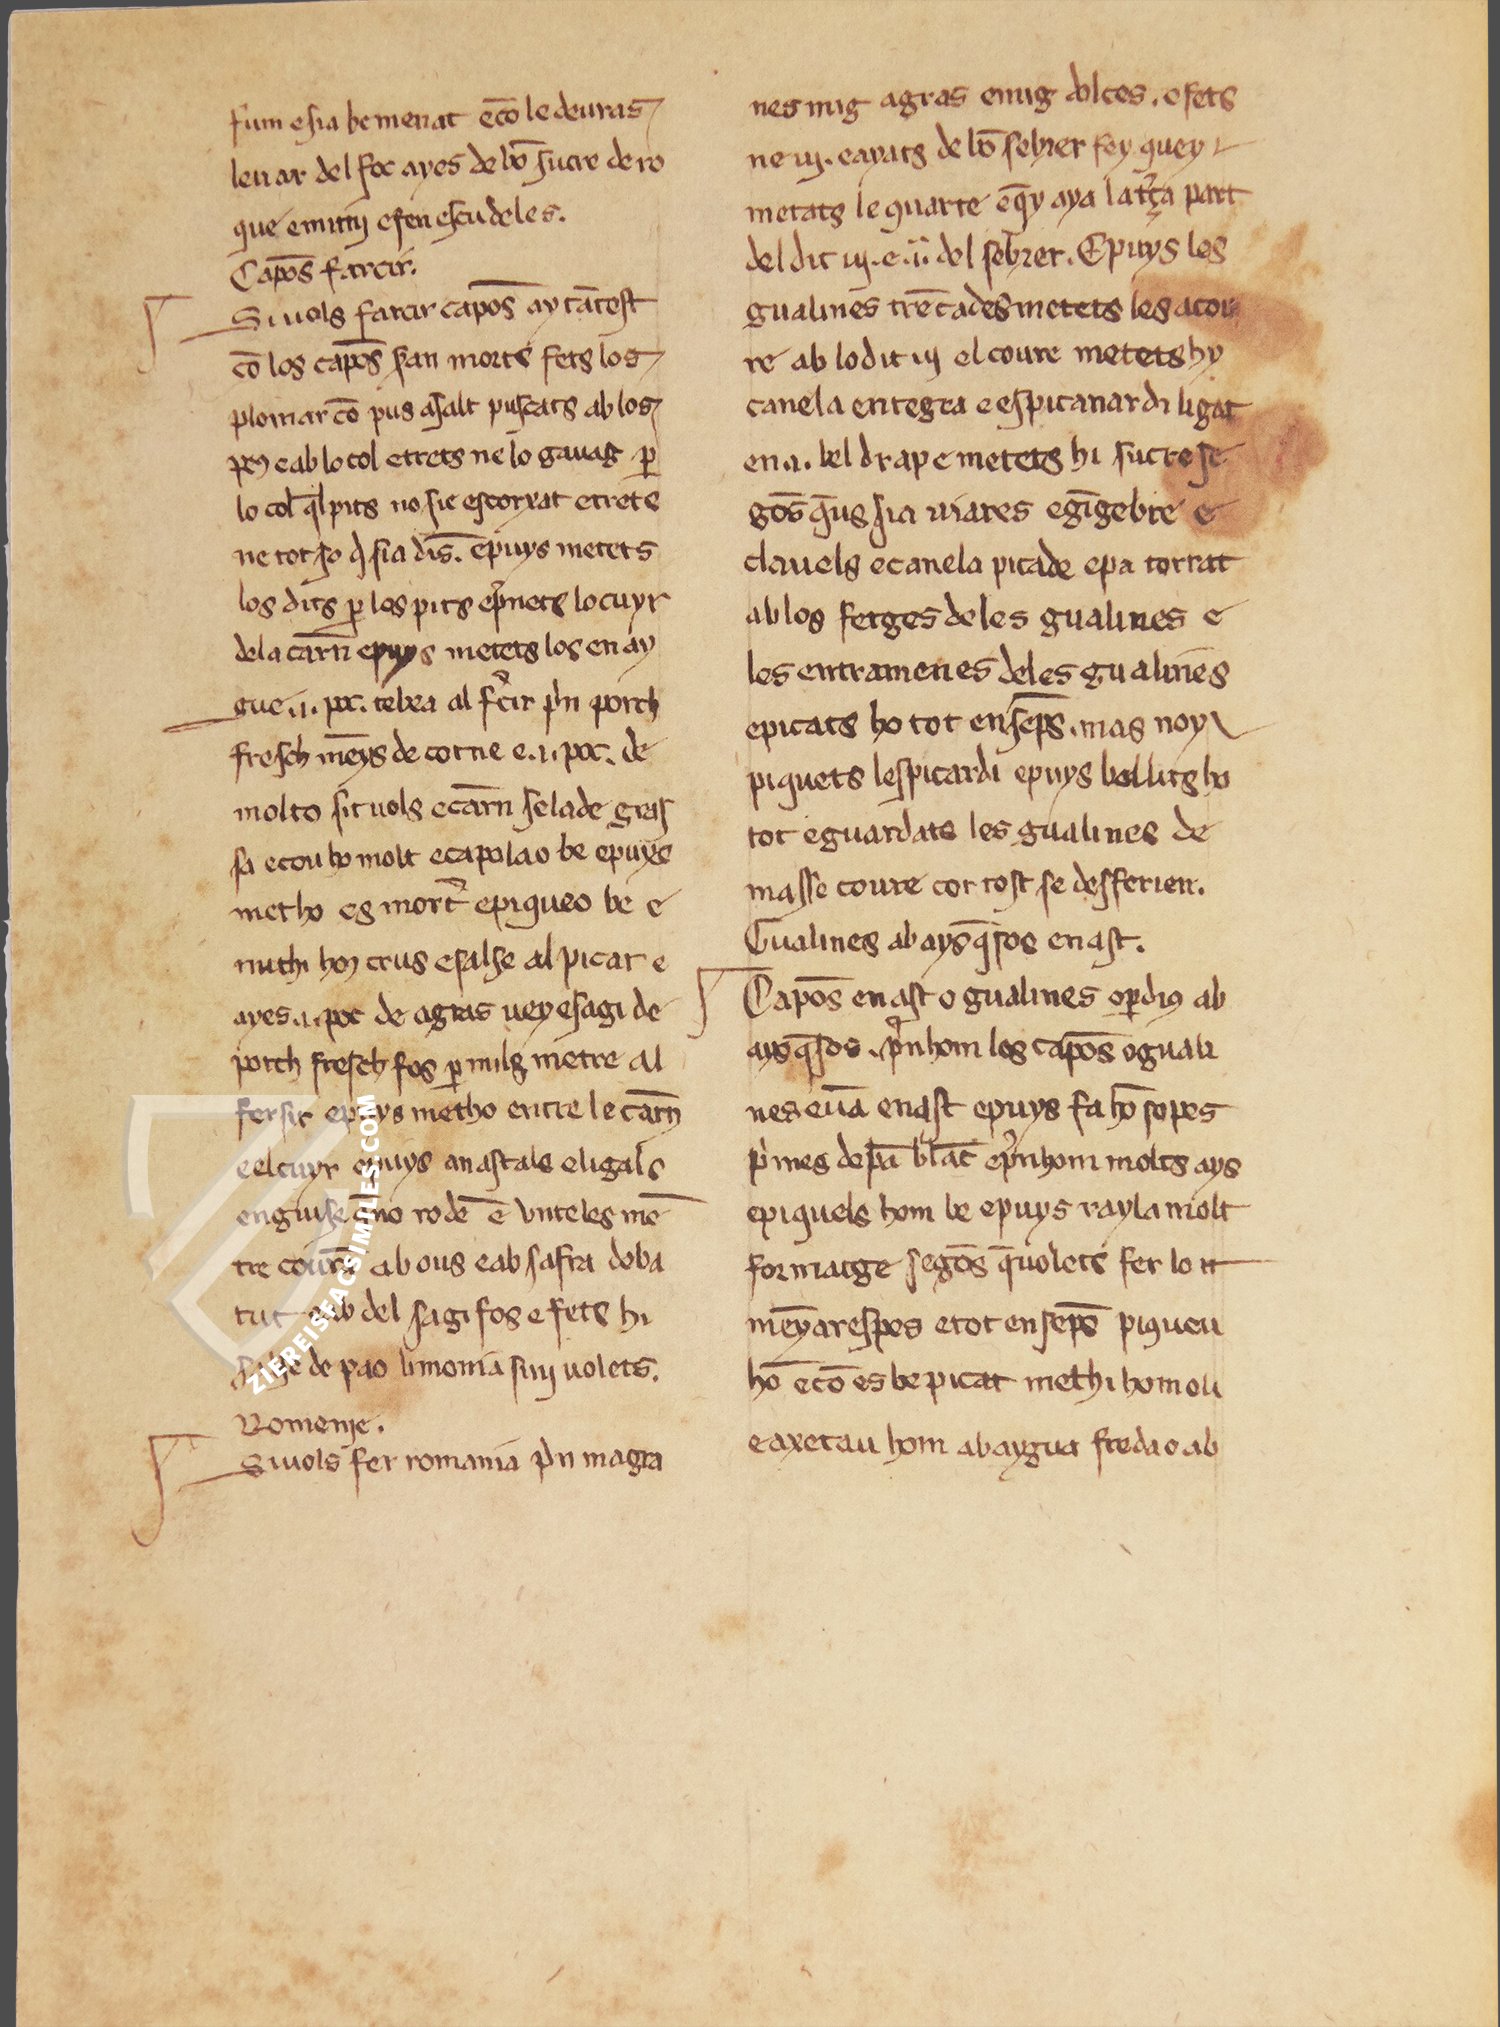 fum e sia be menat e cō le deuras
leuar del foc ayes de bō sucre de ro
que e mitiı e fen escudeles.
Capōs farcir.
Si uols farcir capōs ay tātost
cō los capōs seran morts fets los
plomar cō pus asalt puscats ab los
peus e ab lo col e trets ne lo gauag ꝑ
lo col q̄l pits no sie escorxat e trets
ne tot so q̄ sia dīs. e puys metets
los dits ꝑ los pits e p̄mets lo cuyr
de la carn e puys metets los en ay
gue .i. poc. tebea al f̄cir p̄n porch
fresch mēys de cotne e .i. poc. de
molto sit uols e carn selade gras
sa e cou ho molt e capolao be e puys
met ho eg mort̄ e piqueo be e
mithi hous crus e salse al picar e
ayes .i. poc de agras uey e sagi de
porch fresch fos ꝑ mils metre al
fersir e puys met ho entre le carn
e el cuyr e puys an astals e ligals
en guise q̄ no roden ē unteles mē
tre courā ab ous e ab safra deba
tut e ab del sagi fos e fets hi
salse de pao limonia siuy uolets.
Romenie.
Si uols fer romania p̄n magra
nes mig agras e mig dolces. e fets
ne uy. e ayats de bō sebrer fey quey
metats le quarte e q̄y aya la tr̄ça part
del dit uy. e .ii. del sebrer. E puys les
gualines trēcades metets les a cou
re ab lo dit uy el coure metets hy
canela entegra e espicanardi ligat
en .i. bel drap e metets hi sucre se
gōs q̄us sia uiares e gīgebre e
clauels e canela picade e pa torrat
ab los fetges de les gualines e
les entramenes de les gualines
e picats ho tot ensēps. mas noy
piquets lespicardi e puys bollits ho
tot e guardats les gualines de
masse coure cor tost se desferien.
Gualines ab aysq̄sos en ast.
Capōs en ast o gualines o ꝑdius ab
aysq̄sos. p̄n hom los capōs o guali
nes euā en ast e puys fa hō sopes
p̄mes de pā blāc e p̄n hom molts ays
e piquels hom be e puys rayla molt
formatge segōs q̄ uolets fer lo tt
mēyar espes e tot ensēps piqueu
hō e cō es be picat met hi hom oli
e axetau hom ab aygua freda o ab
ZIEREISFACSIMILES.COM